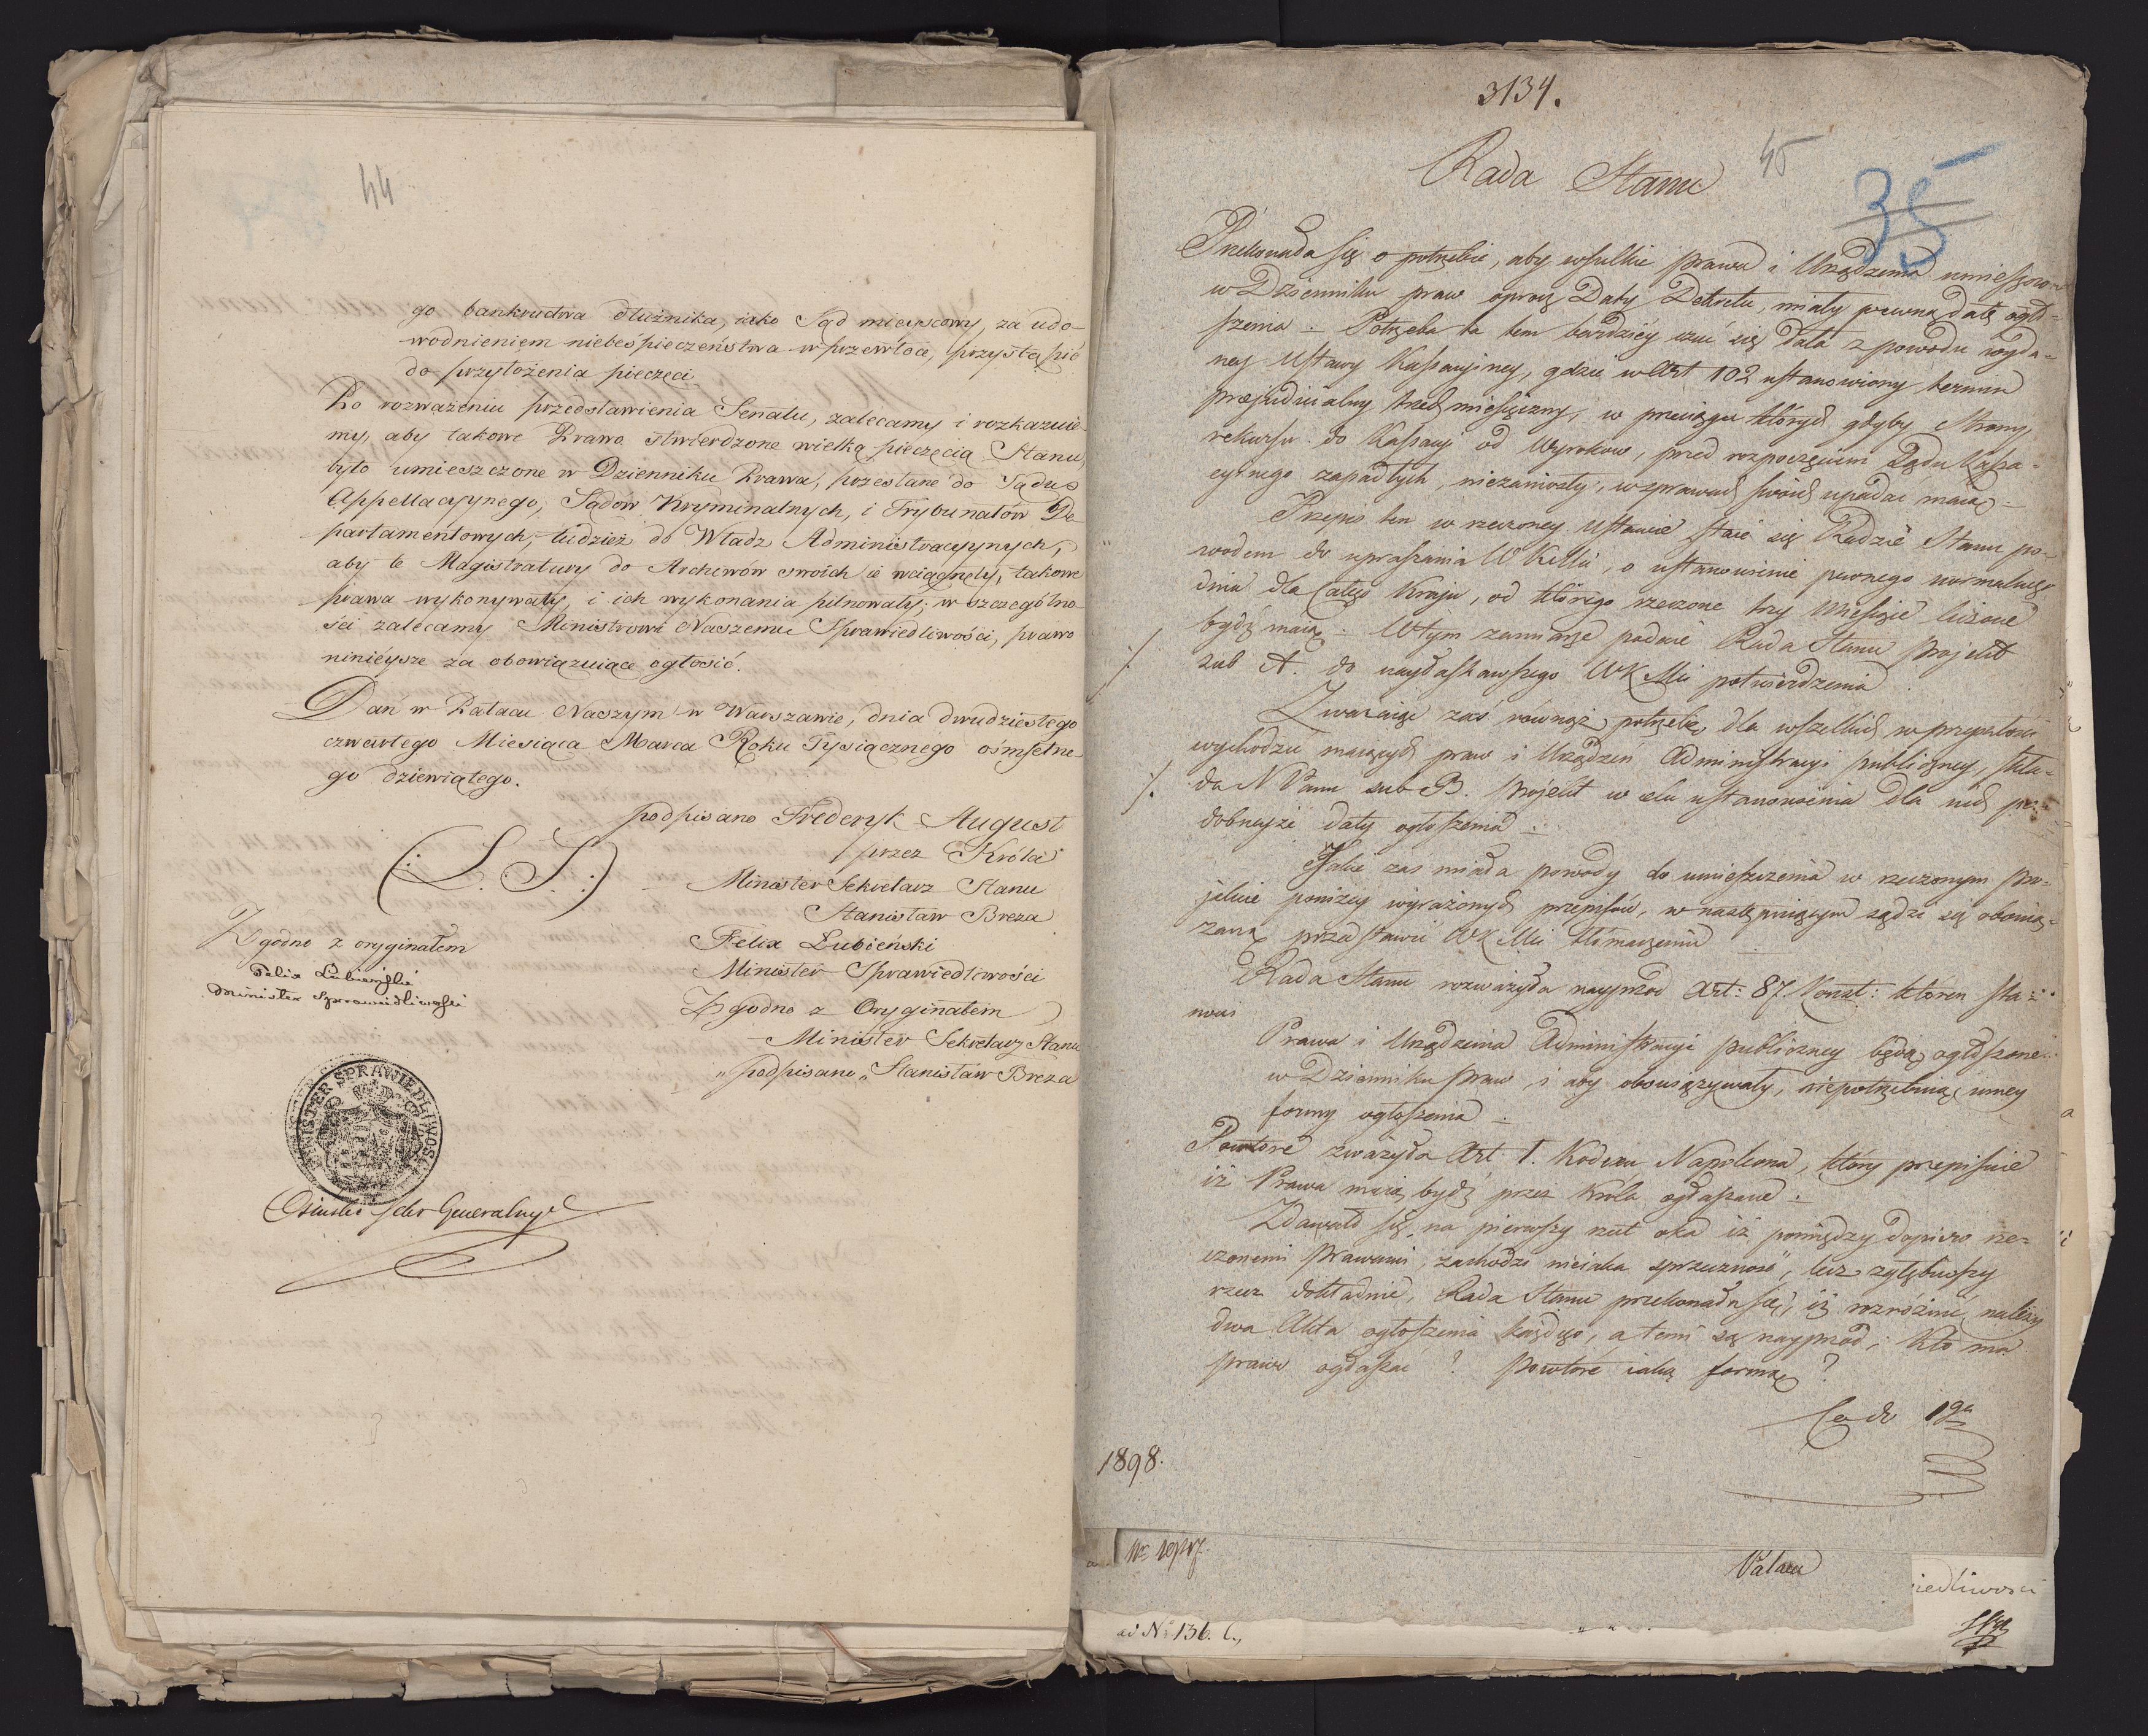 44
go bankructwa dłużnika, iako Sąd mieyscowy, za udo-
wodnieniem niebespieczeństwa w przewłoce, przystąpić
do przyłożenia pieczęci
Po rozważeniu przedstawienia Senatu, zalecamy i rozkazuie-
my, aby takowe Prawo stwierdzone wielką pieczęcią Stanu,
było umieszczone w Dzienniku Prawa, przesłane do Sądu
Appellacyynego, Sądów Kryminalnych, i Trybunałów De-
partamentowych, tudzież do Władz Administracyynych,
aby te Magistratury do Archiwów swoich ie wciągnęły, takowe
prawa wykonywały, i ich wykonania pilnowały; w szczególno-
ści zalecamy Ministrowi Naszemu Sprawiedliwości, prawo
ninieysze za obowiązuiące ogłosić.
Dan w Pałacu Naszym w Warszawie, dnia dwudziestego
czwartego Miesiąca Marca Roku Tysiącznego ośmsetne-
go dziewiątego.
podpisano Frederyk August
przez Króla
(:L. S.:)
Minister Sekretarz Stanu
Stanisław Breza
Zgodno z oryginałem
Felix Lubieński
Felix Lubieński
Minister Sprawiedliwości
Minister Sprawiedliwości
Zgodno z Oryginałem
Minister Sekretarz Stanu
„podpisano„ Stanisław Breza
MINISTER SPRAWIEDLIWOSCI
Osinski Sekr Generalny
3134.
45
35
Rada Stanu
Przekonała się o potrzebie, aby wszelkie prawa i Urządzenia umieszczo-
w Dzienniku praw oprócz Daty Dekretu, miały pewną datę ogło-
szenia. Potrzeba ta tem bardziéy czuć się dała z powodu wyda-
ney Ustawy Kassacyiney, gdzie w Art 102 ustanowiony termin
prejudicialny trzechmiesięczny, w przeciągu których gdyby Strony
rekursu do Kassacyi od Wyroków, przed rozpoczęciem Sądu Kassa-
cyinego zapadłych, niezaniosły, w sprawach swoich upadać maią.
Przepis ten w rzeczoney Ustawie staie się Radzie Stanu po-
wodem do upraszania WKMci, o ustanowienie pewnego normalnego
dnia dla Całego Kraju, od którego rzeczone trzy Miesiące liczone
bydź maią. W tym zamiarze podaie Rada Stanu projekt
./. sub A. do nayłaskawszego WKMci potwierdzenia
Zważaiąc zaś równąż potrzebę dla wszelkich w przyszłości
wychodzić maiących praw i Urządzeń Administracyi publiczney, skła-
./. da N Panu sub B. projekt w celu ustanowienia dla nich po-
dobneyże daty ogłoszenia.
Jakie zaś miała powody do umieszczenia w rzeczonym pro-
jekcie poniżey wyrażonych przepisów, w następuiącym sądzi się obowią-
zaną przedstawić WKMci tłómaczeniu
Rada Stanu rozważyła nayprzod Art: 87. Konst: któren sta-
nowi
Prawa i Urządzenia Administracyi publiczney będą ogłoszone
w Dzienniku praw i aby obowiązywały, niepotrzebuią inney
formy ogłoszenia.
Powtore zważyła Art 1. Kodexu Napoleona, który przepisuie
iż Prawa maią bydź przez Króla ogłaszane.
Zdawało się na pierwszy rzut oka iż pomiędzy dopiero rze-
czonemi Prawami, zachodzi nieiaka sprzeczność, lecz zgłębiwszy
rzecz dokładnie, Rada Stanu przekonała się, iż rozróżnić należy
dwa Akta ogłoszenia każdego, a temi są nayprzod; Kto ma
prawo ogłaszać? Powtore iaką formą?
Co do 1go
1898.
Pałacu
iedliwosci
ad No 136. C.,